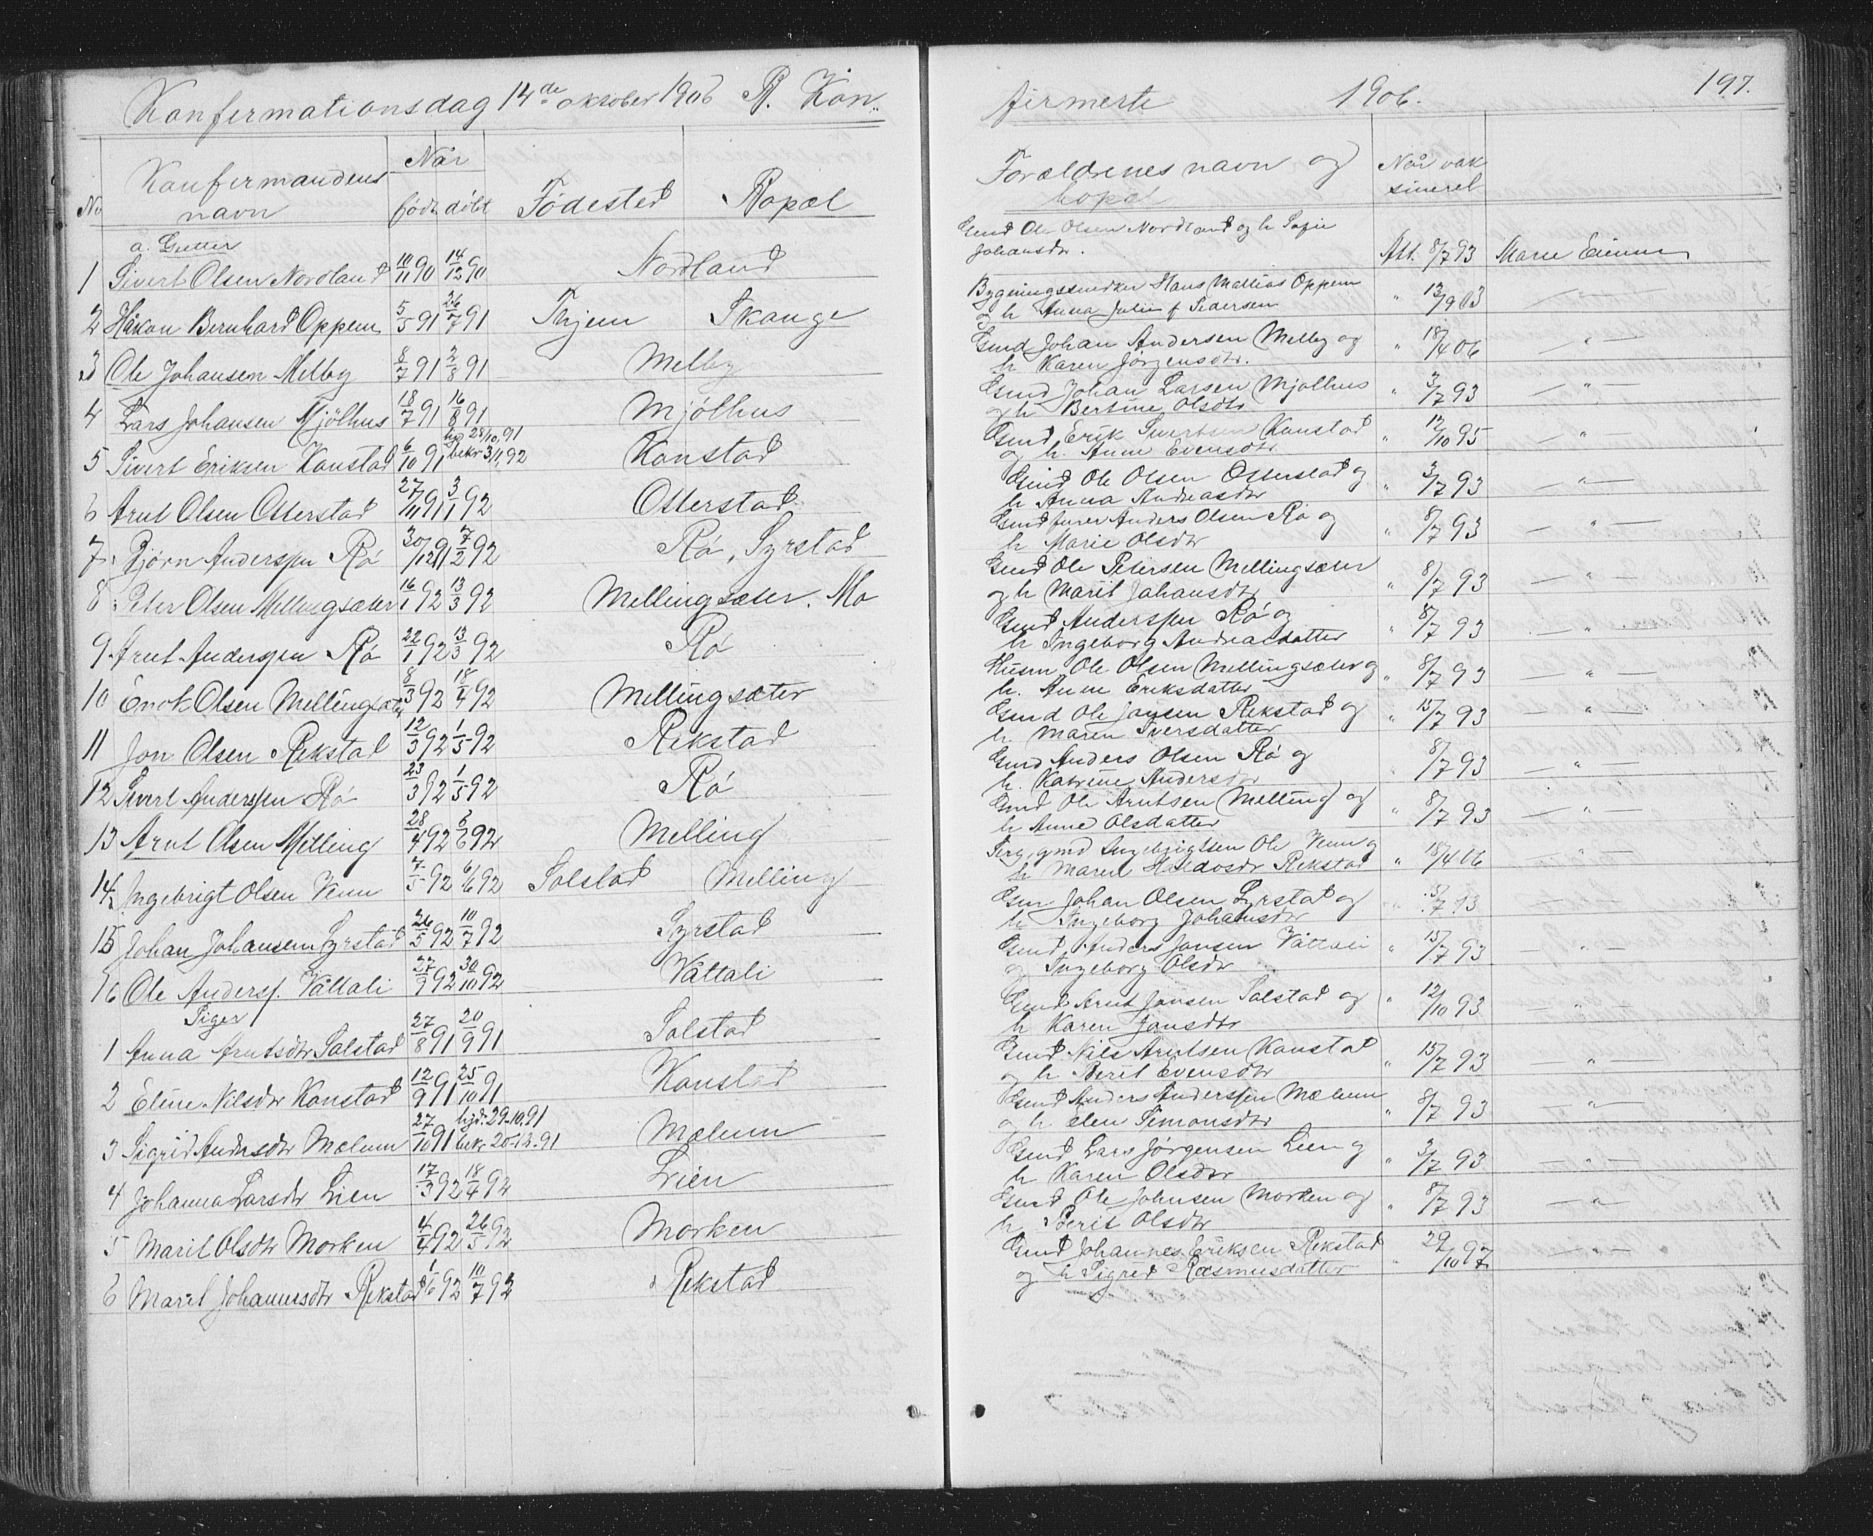 Konfermationsdag 14de oktober 1906 B. Kon-
No Konfermandens navn Når født døbt Fødested Bopæl
a. Gutter
1 Sivert Olsen Nordland 10/11 90 14/12 90 Nordland
2 Håkon Bernhard Oppem 5/5 91 26/7 91 Thjem Skauge
3 Ole Johansen Melby 8/7 91 2/8 91 Melby
4 Lars Johansen Mjölhus 18/7 91 16/8 91 Mjölhus
5 Sivert Eriksen Konstad 6/10 91 28/10, 91 bekr 3/1, 92 Konstad
6 Arnt Olsen Otterstad 27/11 91 3/1 92 Otterstad
7 Bjørn Anderssen Rö 30/12 91 7/2 92 Rö, Syrstad
8 Peter Olsen Mellingsæter 16/1 92 13/3 92 Mellingsæter. Mo
9 Arnt Anderssen Rö 22/1 92 13/3 92 Rö
10 Enok Olsen Mellingsæter 8/3 92 18/4 92 Mellingsæter
11 Jon Olsen Rekstad 12/3 92 1/5 92 Rekstad
12 Sivert Anderssen Rö 23/3 92 1/5 92 Rö
13 Arnt Olsen Melling 28/4 92 6/6 92 Melling
14 Ingebrigt Olsen Venn 7/5 92 6/6 92 Solstad Melling
15 Johan Johansen Syrstad 26/5 92 10/7 92 Syrstad
16 Ole Anderss. Våttali 27/9 92 30/10 92 Våttali
Piger
1 Anna Arntsdtr Solstad 27/8 91 20/9 91 Solstad
2 Eline Nilsdtr Konstad 12/9 91 25/10 91 Konstad
3 Sigrid Andersdtr Mælum 27/10 91 hjd. 29.10.91 bekr 20.12.91 Mælum
4 Johanna Larsdtr Lien 17/3 92 18/4 92 Lien
5 Marit Olsdtr Morken 4/4 92 26/5 92 Morken
6 Marit Johannesdtr Rekstad 1/6 92 10/7 92 Rekstad
firmerte 1906. 197.
Forældrenes navn og bopæl Når vaksineret
Gmd Ole Olsen Nordland og h Sofie
Johansdtr. Att. 8/7 93 Marie
Bygningssnedker Hans Mattias Oppem
og h Anna Julie f Pedersen " 12/9 03 — " —
Gmd Johan Andersen Melby og
h Karen Jørgensdtr. " 18/4 06 — " —
Gmd Johan Larsen Mjölhus
og h Bertine Olsdtr " 3/7 93 — " —
Gmd Erik Sivertsen Konstad
og h. Anne Evensdtr " 12/10 95 "
Gmd Ole Olsen Otterstad og
h Anna Andreasdtr " 3/7 93 — " —
Gmd Anders Olsen Rö og
h Marie Olsdtr " 8/7 93 — " —
Gmd Ole Petersen Mellingsæter
og h Marit Johansdtr " 8/7 93 — " —
Gmd Anderssen Rö og
h Ingeborg Andreasdatter " 8/7 93 — " —
Husm Ole Olsen Mellingsæter og
h. Anne Eriksdatter " 8/7 93 — " —
Gmd Ole Jonsen Rekstad og
h. Maren Iversdatter " 15/7 93 — " —
Gmd Anders Olsen Rö og
h. Katrine Andersdtr " 8/7 93 — " —
Gmd Ole Arntsen Melling og
h Anne Olsdatter " 8/7 93 — " —
Serg, gmd Ole Venn og
h Rekstad " 18/4 06 — " —
Gm Johan Olsen Syrstad og
h Ingeborg Johansdtr 3/7 93 — " —
Gmd Anders Jonsen Våttali
og Ingeborg Olsdtr " 15/7 93 — " —
Gmd Arnt Jonsen Solstad og
h Karen Jonsdtr " 12/10 93 — " —
Gmd Nils Arntsen Konstad
og h Berit Evensdtr " 15/7 93 — " —
Gmd Anders Anderssen Mælum
og h Elen Simonsdtr " 8/7 93 — " —
Gmd Lars Jørgensen Lien og
h Karen Olsdtr " 3/7 93 — " —
Gmd Ole Johnsen Morken og
h Berit Olsdtr " 8/7 93 — " —
Gmd Johannes Eriksen Rekstad
og h Sigrid Rasmusdatter " 29/10 97 — " —